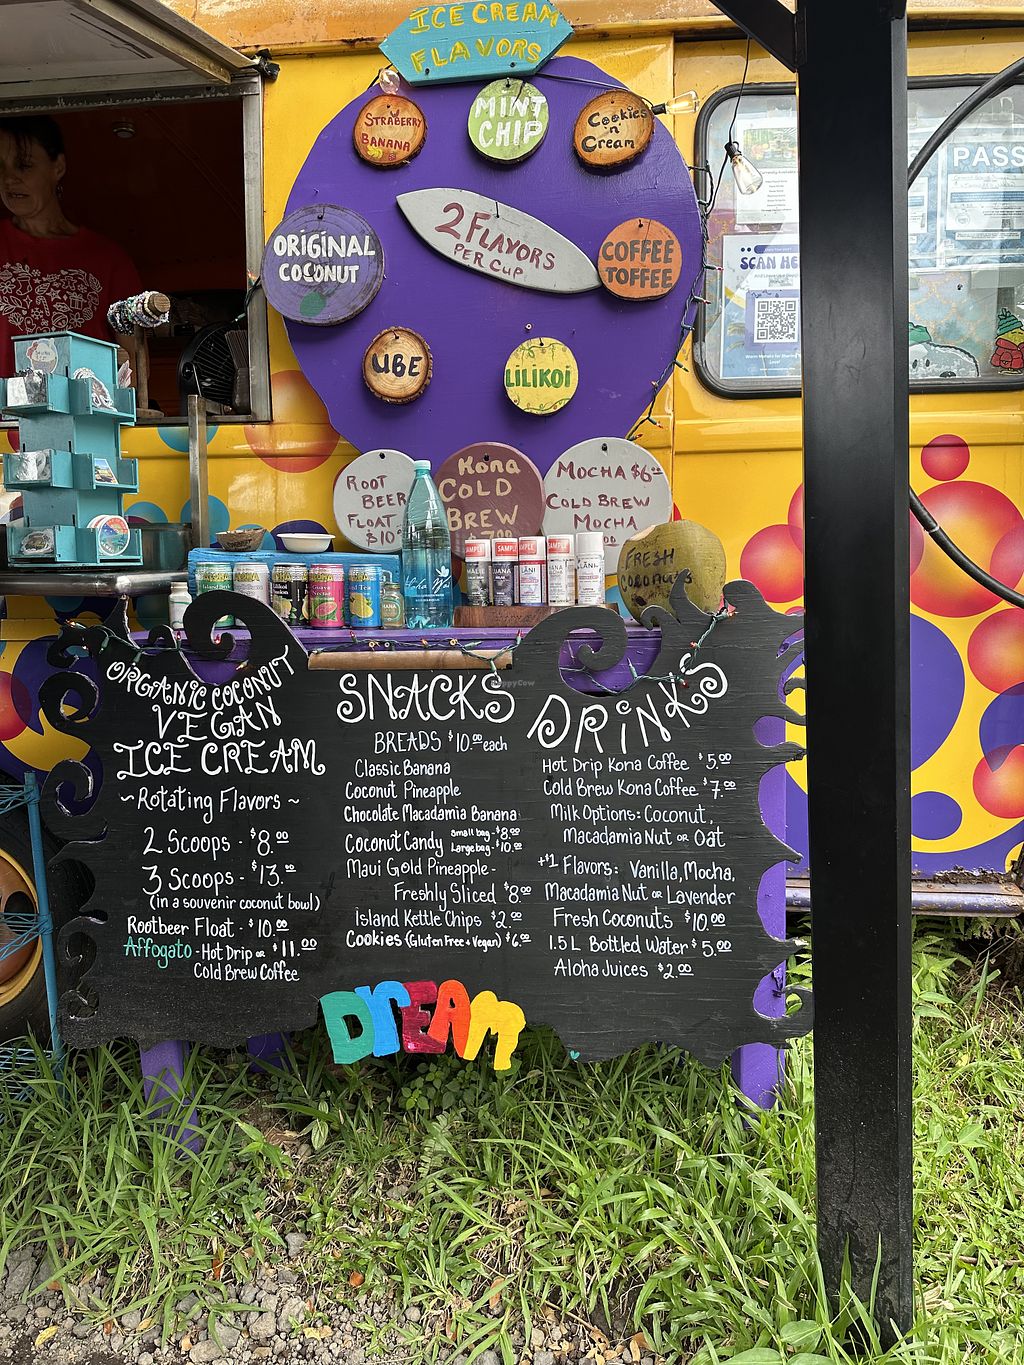 ICE CREAM
FLAVORS
STRABERRY
BANANA
MINT
CHIP
Cookies
'n'
Cream
ORIGINAL
COCONUT
2 FLAVORS
PER CUP
COFFEE
TOFFEE
UBE
LILIKOI
PASS
SCAN HE
ROOT
BEER
FLOAT
$10
Kona
COLD
BREW
MOCHA $6.00
COLD BREW
MOCHA
FRESH
COCONUTS
SAMPLE
SAMPLE
SAMPLE
HappyCow
ORGANIC COCONUT
VEGAN
ICE CREAM
~Rotating Flavors~
2 Scoops - $8.00
3 Scoops - $13.00
(in a souvenir coconut bowl)
Rootbeer Float - $10.00
Affogato - Hot Drip or $11.00
Cold Brew Coffee
SNACKS
BREADS $10.00 each
Classic Banana
Coconut Pineapple
Chocolate Macadamia Banana
Coconut Candy small bag - $8.00
Large bag - $10.00
Maui Gold Pineapple -
Freshly Sliced $8.00
Island Kettle Chips $2.00
Cookies (Gluten Free + Vegan) $6.00
DRINKS
Hot Drip Kona Coffee $5.00
Cold Brew Kona Coffee $7.00
Milk Options: Coconut,
Macadamia Nut or Oat
+$1 Flavors: Vanilla, Mocha,
Macadamia Nut or Lavender
Fresh Coconuts $10.00
1.5 L Bottled Water $5.00
Aloha Juices $2.00
DREAM